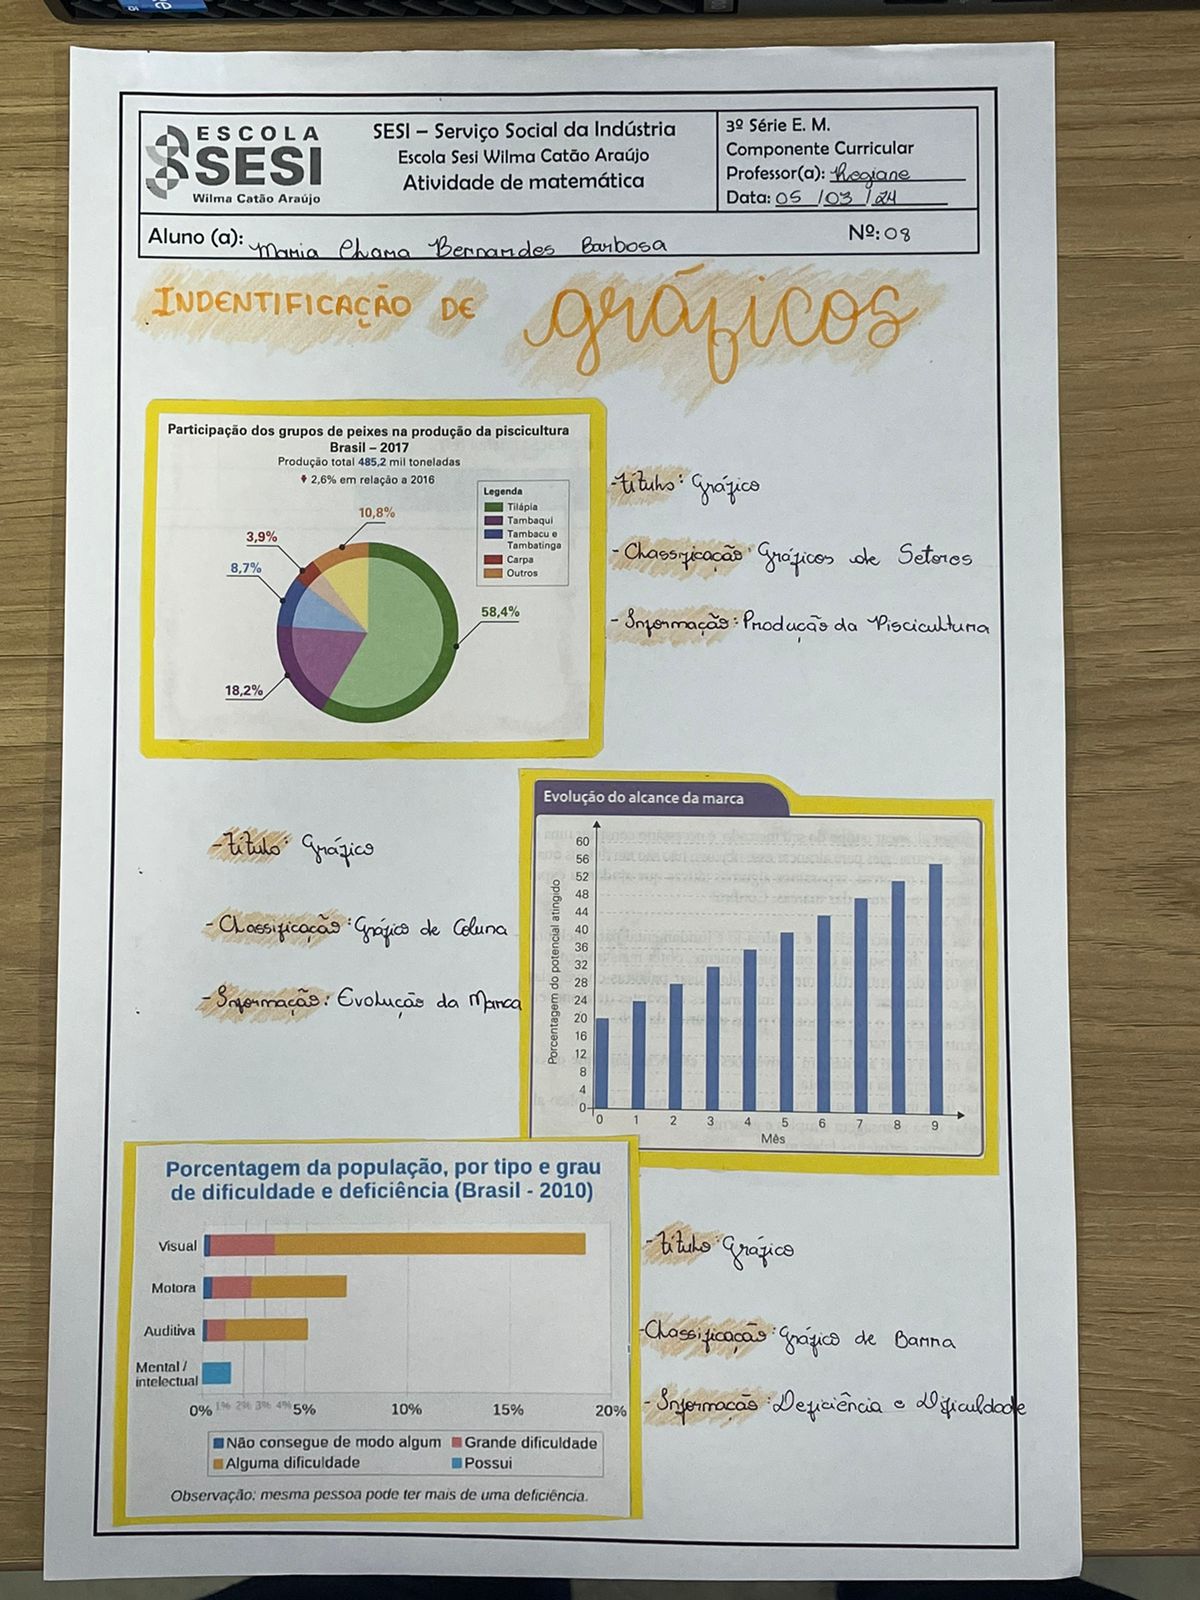 ESCOLA
SESI
Wilma Catão Araújo
SESI – Serviço Social da Indústria
Escola Sesi Wilma Catão Araújo
Atividade de matemática
3º Série E. M.
Componente Curricular
Professor(a): Regiane
Data: 05 /03 /24
Aluno (a): Maria Clara Bernardes Barbosa
Nº: 08
INDENTIFICAÇÃO DE gráficos
Participação dos grupos de peixes na produção da piscicultura
Brasil – 2017
Produção total 485,2 mil toneladas
2,6% em relação a 2016
Legenda
Tilápia
Tambaqui
Tambacu e
Tambatinga
Carpa
Outros
10,8%
3,9%
8,7%
58,4%
18,2%
- Título: Gráfico
- Classificação: Gráficos de Setores
- Informação: Produção da Piscicultura
- Título: Gráfico
- Classificação: Gráfico de Coluna
- Informação: Evolução da Marca
Evolução do alcance da marca
Porcentagem do potencial atingido
60
56
52
48
44
40
36
32
28
24
20
16
12
8
4
0
0 1 2 3 4 5 6 7 8 9
Mês
Porcentagem da população, por tipo e grau
de dificuldade e deficiência (Brasil - 2010)
Visual
Motora
Auditiva
Mental /
intelectual
0% 1% 2% 3% 4% 5% 10% 15% 20%
Não consegue de modo algum Grande dificuldade
Alguma dificuldade Possui
Observação: mesma pessoa pode ter mais de uma deficiência.
- Título: Gráfico
- Classificação: Gráfico de Barra
- Informação: Deficiência e Dificuldade